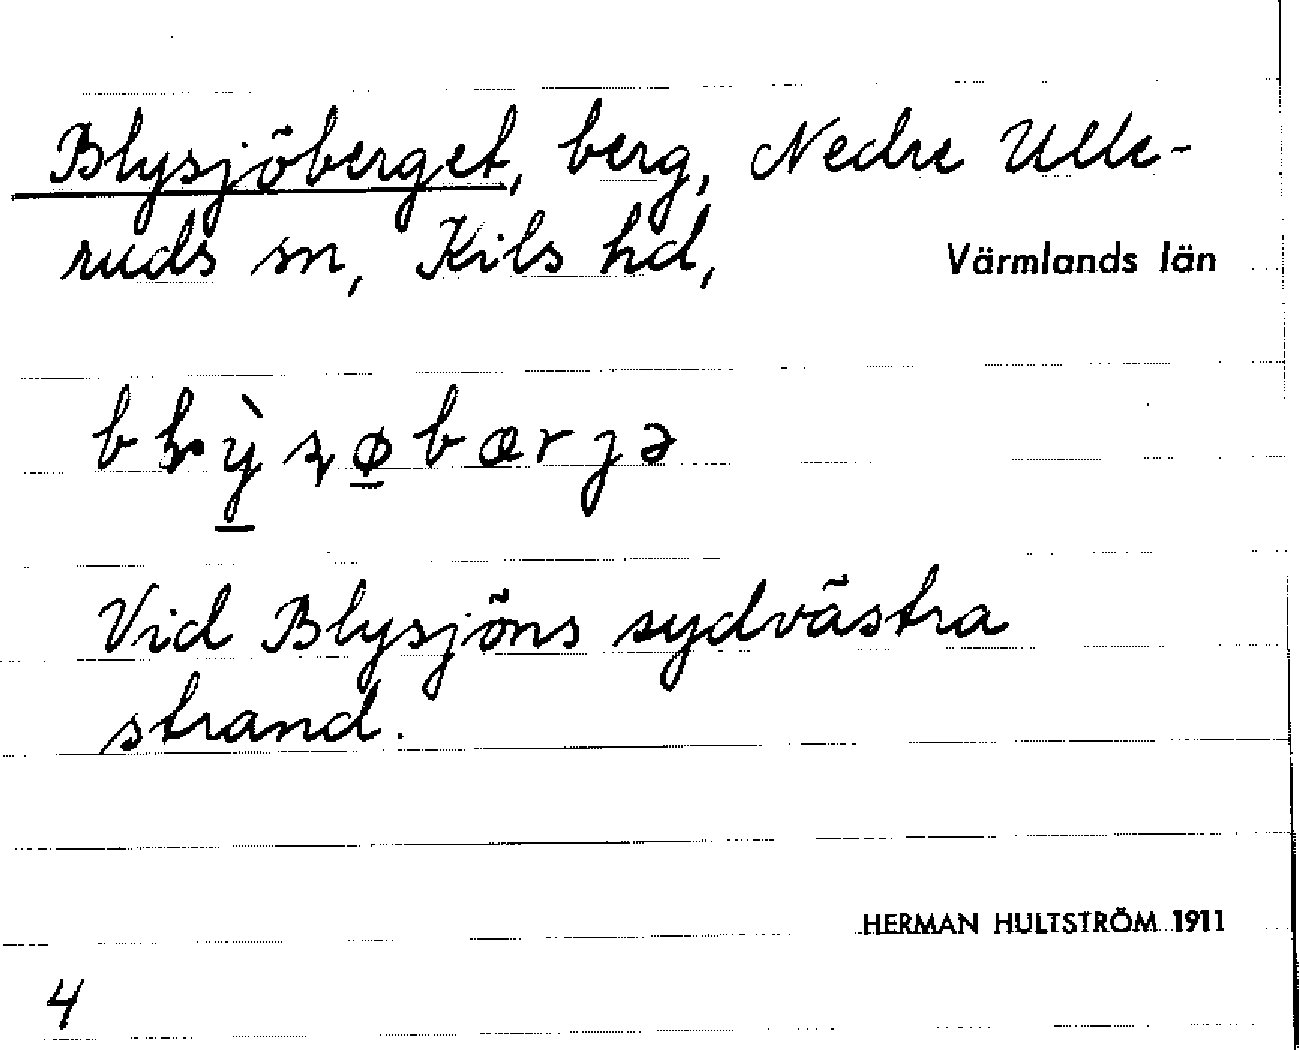 Blysjöberget, berg, Nedre Ulle-
ruds sn, Kils hd, Värmlands län
Vid Blysjöns sydvästra
strand.
HERMAN HULTSTRÖM 1911
4